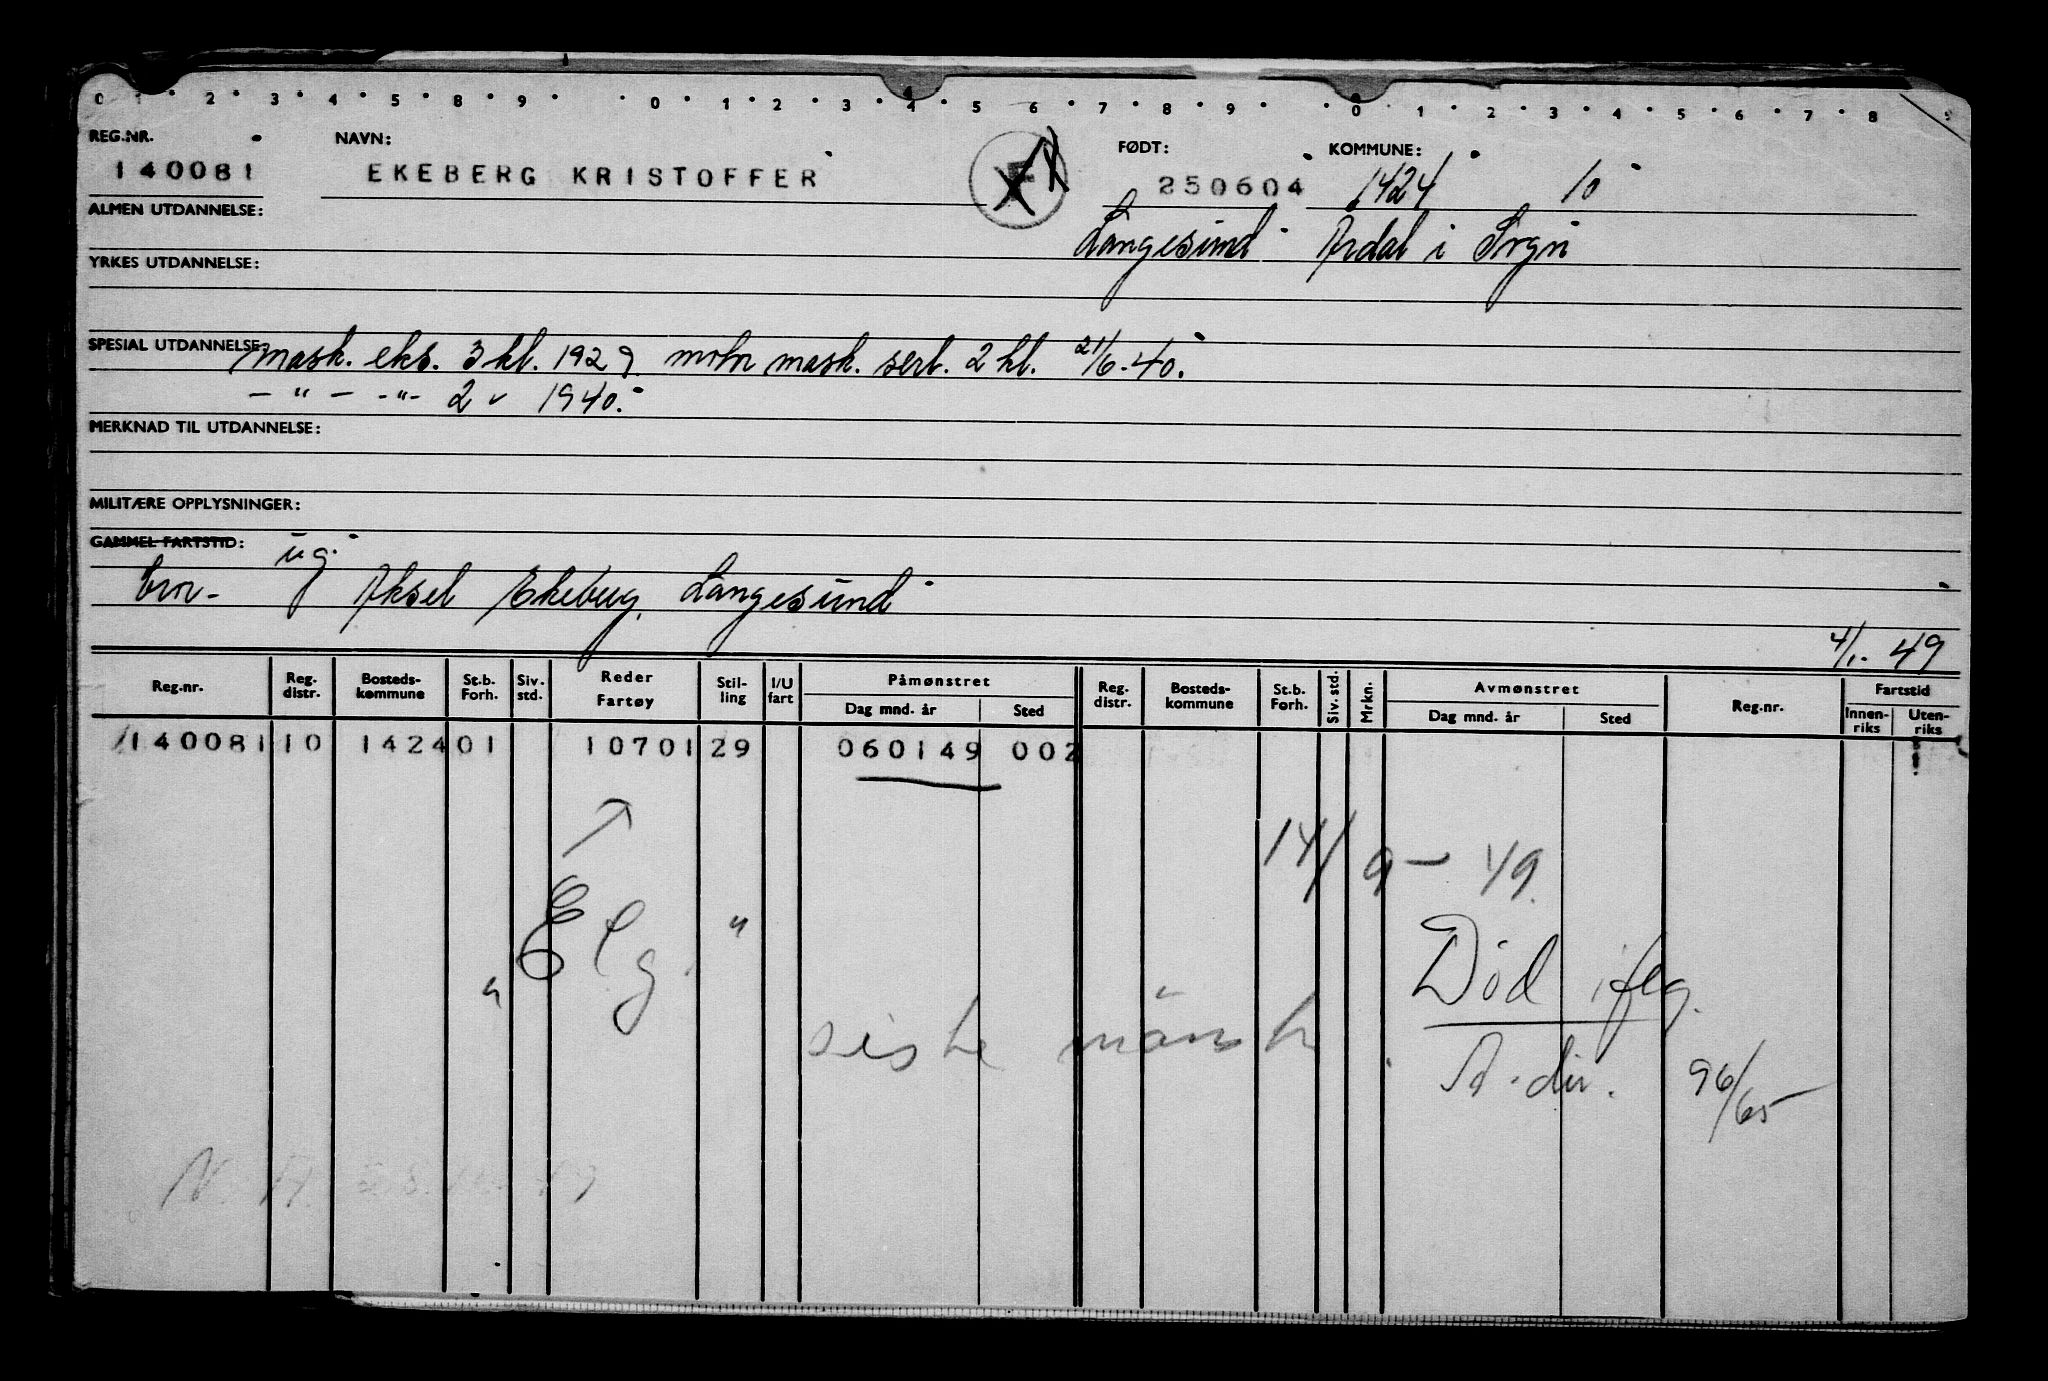 0 1 2 3 4 5 8 9 0 1 2 3 4 5 6 7 8 9 0 1 2 3 4 5 6 7 8 9
REG.NR. NAVN: FØDT: KOMMUNE:
140081 EKEBERG KRISTOFFER F 250604 1424 10
ALMEN UTDANNELSE: Langesund Årdal i Sogn
YRKES UTDANNELSE:
SPESIAL UTDANNELSE: mask. eks. 3 kl. 1929 motor mask. sert. 2 kl. 21/6-40.
– " – -"- 2 " 1940.
MERKNAD TIL UTDANNELSE:
MILITÆRE OPPLYSNINGER:
GAMMEL FARTSTID: ug.
bror- Aksel Ekeberg, Langesund
4/1. 49
Reg.nr. Reg. distr. Bosteds-kommune St.b. Forh. Siv. std. Reder Fartøy Stil-ling I/U fart Påmønstret Dag mnd. år Sted Reg. distr. Bosteds-kommune St.b. Forh. Siv. std. Mrkn. Avmønstret Dag mnd. år Sted Reg.nr. Fartstid Innen-riks Uten-riks
140081 10 1424 01 10701 29 060149 002
14/9 – 49.
" Elg. "
Død iflg.
siste mønst
A.dir. 96/65
N.A.